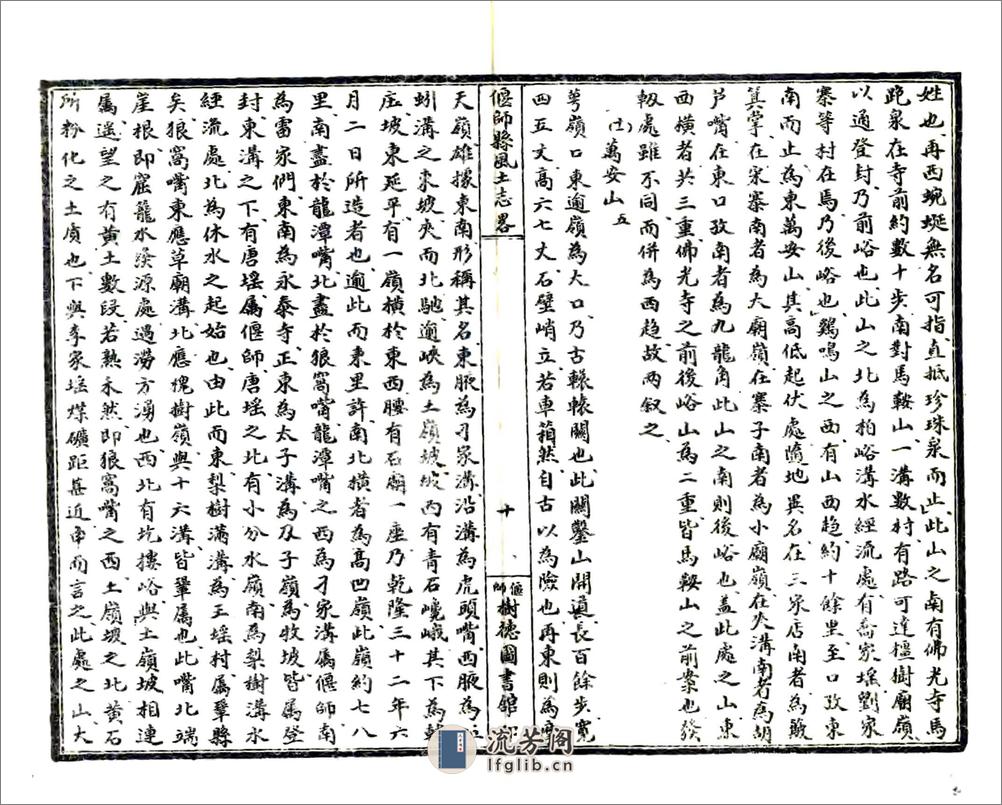 姓也、再西蜿蜒無名可指、直抵珍珠泉而止」此山之南有佛光寺馬
跑泉在寺前約數十步南對馬鞍山一溝數村有路可達檀樹廟嶺
以通登封乃前峪也此山之北為柏峪溝水經流處有喬家瑶劉家
寨等村在焉乃後峪也」鷄鳴山之西有山西趋約十餘里至口孜東
南而止為東萬安山其高低起伏處隨地異名在三家店南者為簸
箕掌在宋寨南者為大廟嶺在寨子南者為小廟嶺在夾溝南者為胡
芦嘴在東口孜南者為九龍角此山之南則後峪也盖此處之山東
西橫者共三重佛光寺之前後峪山為二重皆馬鞍山之前案也發
軔處雖不同而併為西趋故两叙之
㈩萬安山 五
萼嶺口東逾嶺為大口乃古轘轅關也此關鑿山開道長百餘步寬
四五丈高六七丈石壁峭立若車箱然自古以為險也再東則為
偃師縣風土志畧
十
偃師樹德圖書館
天嶺雄據東南形稱其名東腋為刁家溝沿溝為虎頭嘴西腋為
蚓溝之東坡夾而北馳逾峽為土嶺坡坡西有青石巉峨其下為韓
庄坡東延平有一嶺橫於東西腰有石廟一座乃乾隆三十二年六
月二日所造者也逾此而東里許南北橫者為高凹嶺此嶺約七八
里南盡於龍潭嘴北盡於狼窩嘴龍潭嘴之西為刁家溝屬偃師南
為雷家們東南為永泰寺正東為太子溝為及子嶺為牧坡皆屬登
封東溝之下有唐瑶屬偃師唐瑶之北有小分水嶺南為梨樹溝水
經流處北為休水之起始也由此而東梨樹滿溝為王瑶村屬鞏縣
矣狼窩嘴東應草廟溝北應槐樹嶺與十六溝皆鞏屬也此嘴北端
崖根即窟籠水發源處遇澇方湧也西北有圪摟峪與土嶺坡相連
屬遥望之有黄土數段若熟禾然即狼窩嘴之西土嶺坡之北黄石
所粉化之土质也下與李家瑶煤礦距甚近申而言之此處之山大
流芳阁
lfglib.cn